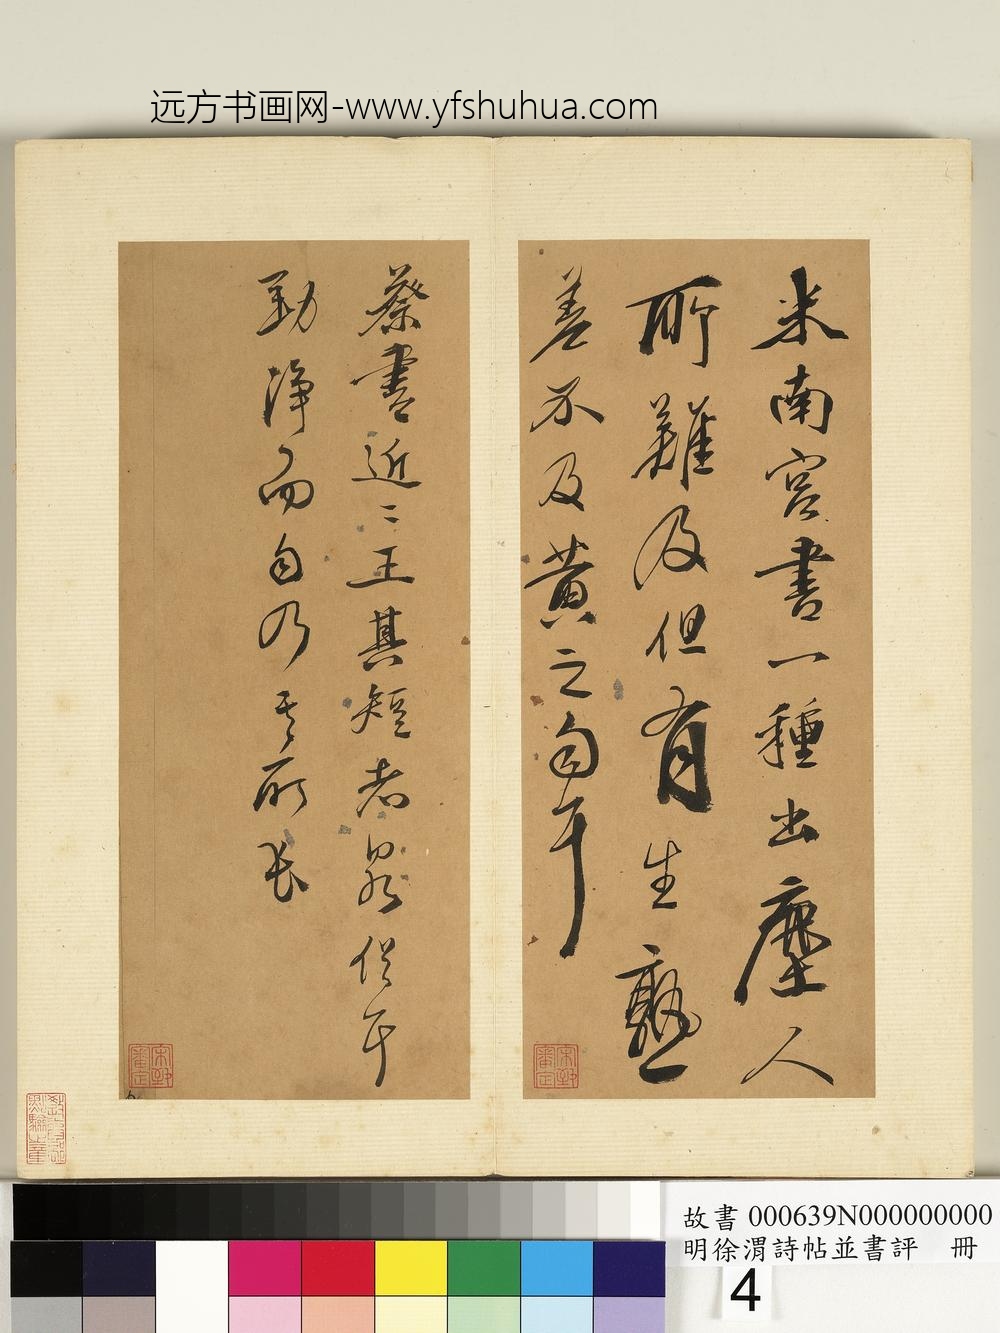 远方书画网-www.yfshuhua.com
米南宮書一種出塵人
所難及但有生熟
差不及黃之匀耳
蔡書近二王其短者畧俗耳
勁淨而匀乃其所長
故書 000639N000000000
明徐渭詩帖並書評 冊
4